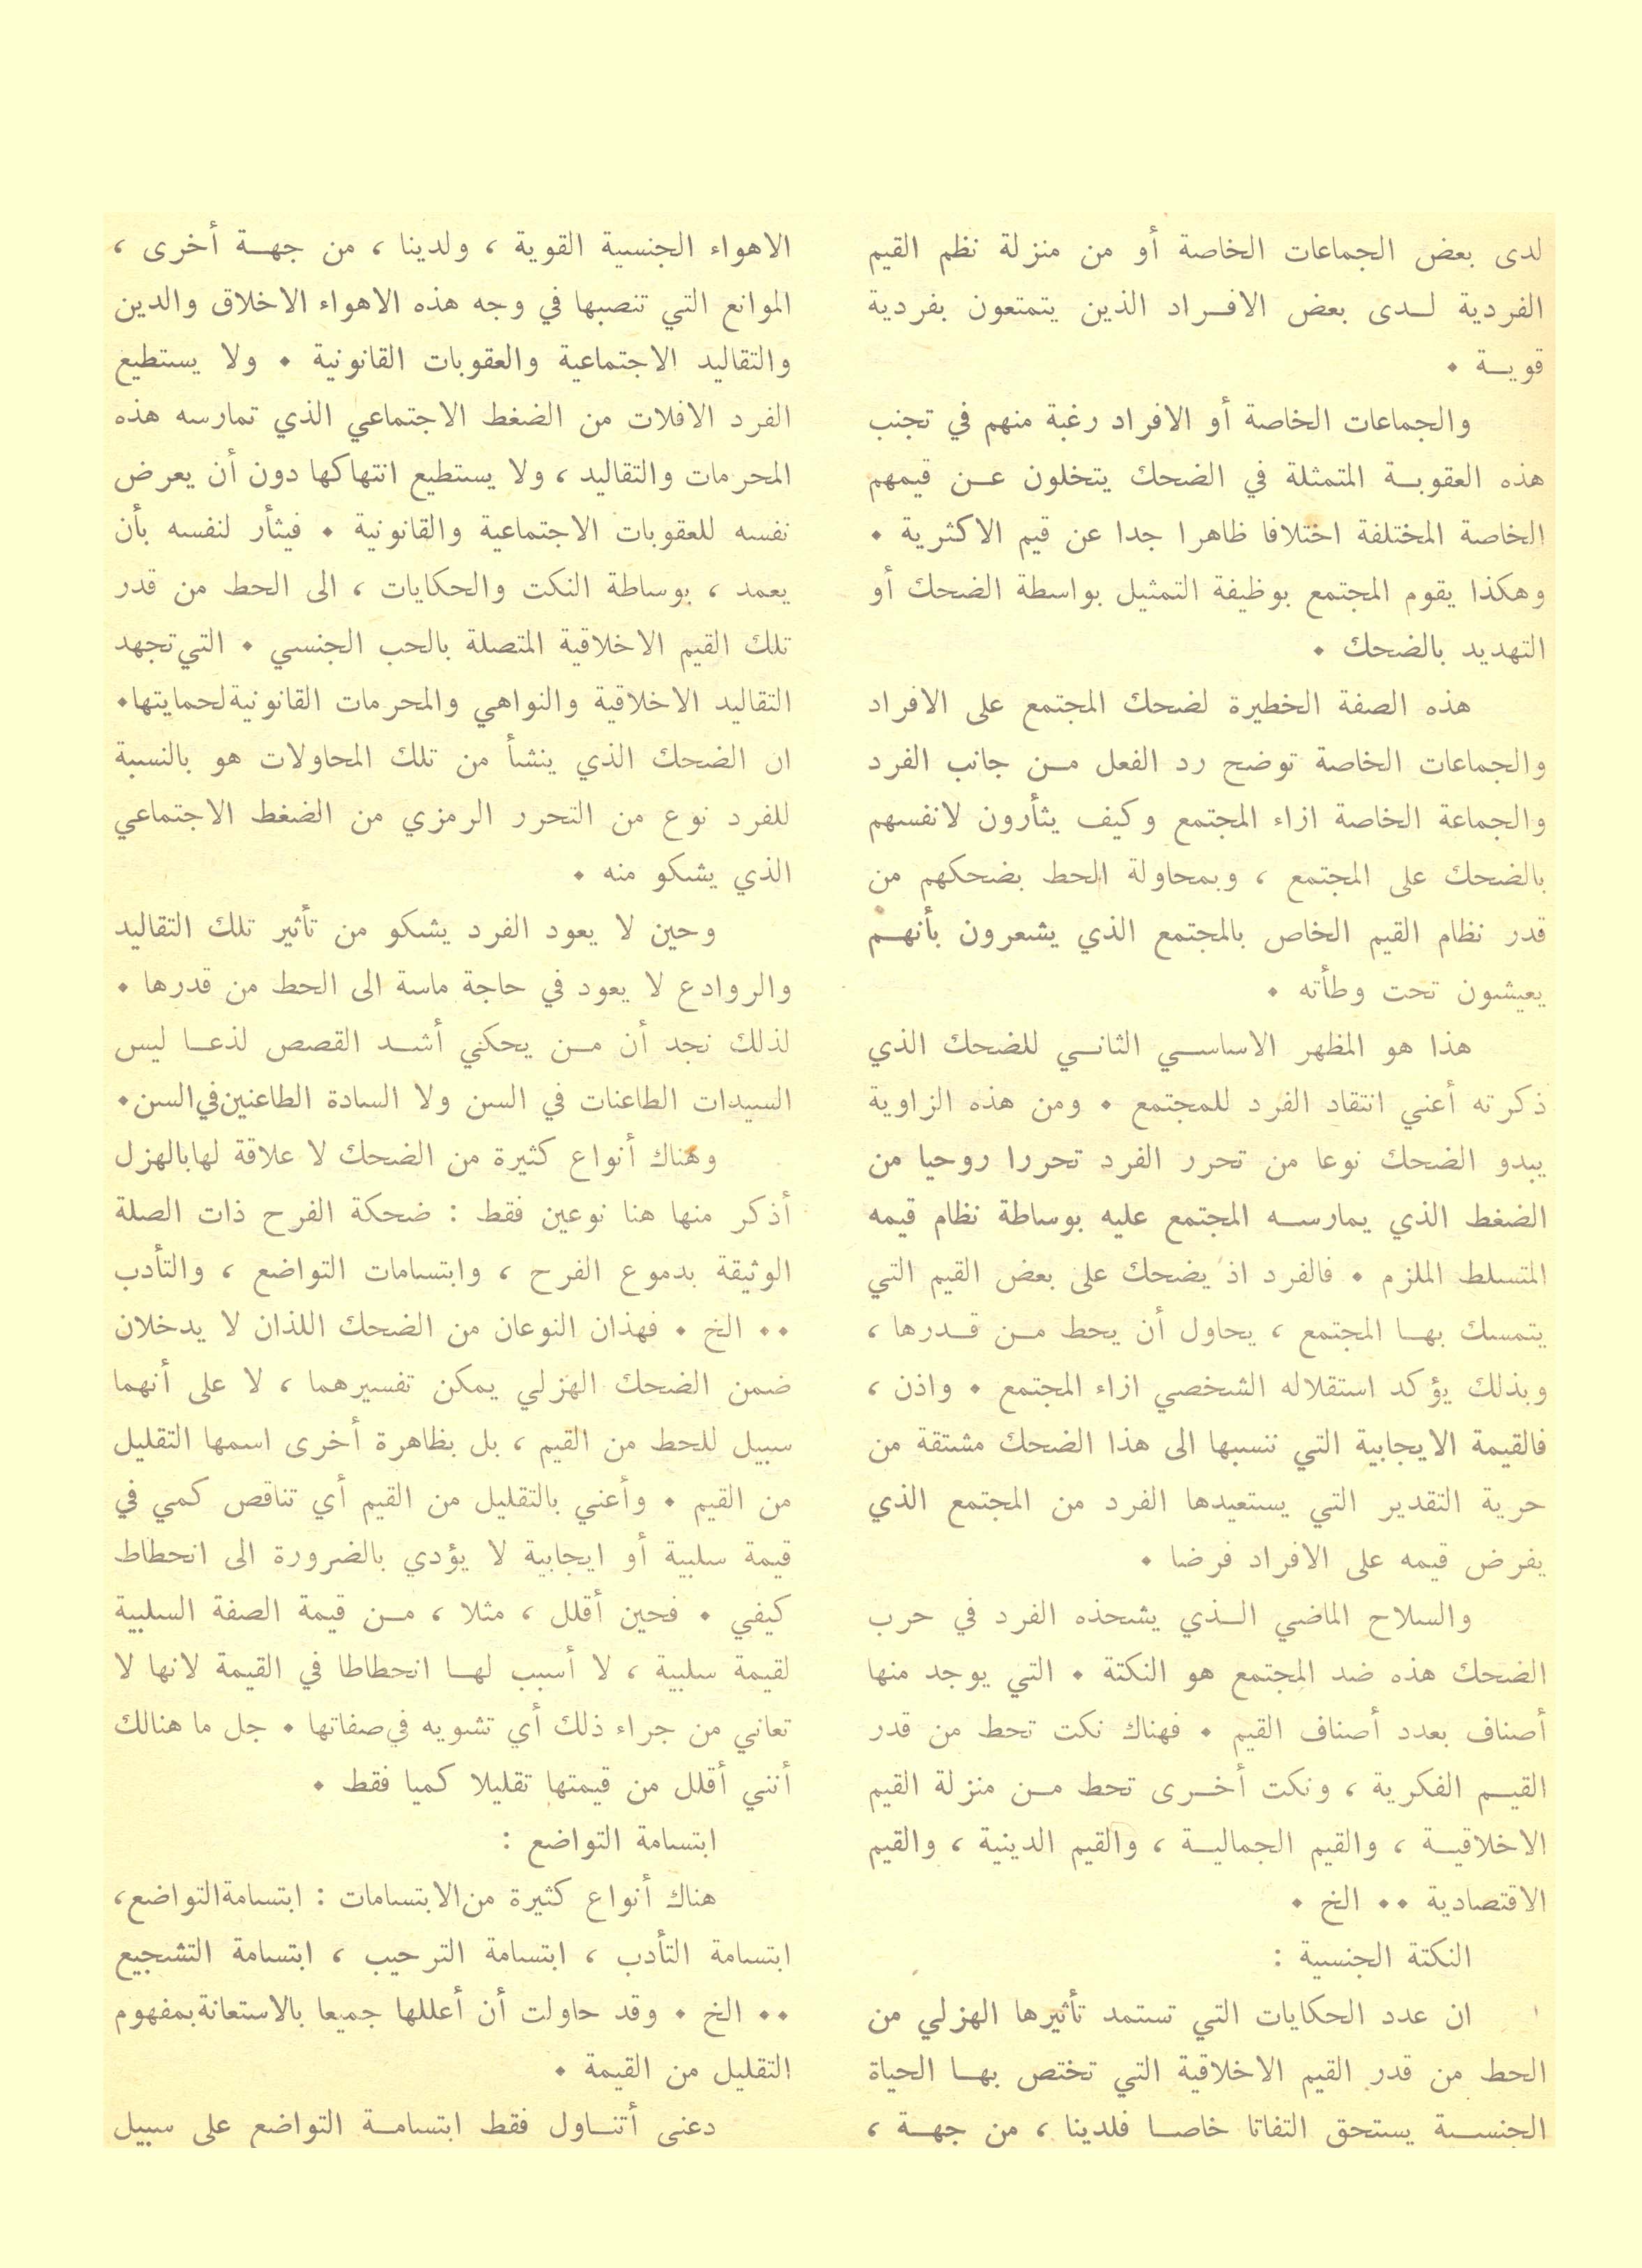 لدى بعض الجماعات الخاصة أو من منزلة نظم القيم
الفردية لدى بعض الافراد الذين يتمتعون بفردية
قوية ٠
والجماعات الخاصة أو الافراد رغبة منهم في تجنب
هذه العقوبة المتمثلة في الضحك يتخلون عن قيمهم
الخاصة المختلفة اختلافا ظاهرا جدا عن قيم الاكثرية ٠
وهكذا يقوم المجتمع بوظيفة التمثيل بواسطة الضحك أو
التهديد بالضحك ٠
هذه الصفة الخطيرة لضحك المجتمع على الافراد
والجماعات الخاصة توضح رد الفعل من جانب الفرد
والجماعة الخاصة ازاء المجتمع وكيف يثأرون لانفسهم
بالضحك على المجتمع ، وبمحاولة الحط بضحكهم من
قدر نظام القيم الخاص بالمجتمع الذي يشعرون بأنهم
يعيشون تحت وطأته ٠
هذا هو المظهر الاساسي الثاني للضحك الذي
ذكرته أعني انتقاد الفرد للمجتمع ٠ ومن هذه الزاوية
يبدو الضحك نوعا من تحرر الفرد تحررا روحيا من
الضغط الذي يمارسه المجتمع عليه بوساطة نظام قيمه
المتسلط الملزم ٠ فالفرد اذ يضحك على بعض القيم التي
يتمسك بها المجتمع ، يحاول أن يحط من قدرها ،
وبذلك يؤكد استقلاله الشخصي ازاء المجتمع ٠ واذن ،
فالقيمة الايجابية التي ننسبها الى هذا الضحك مشتقة من
حرية التقدير التي يستعيدها الفرد من المجتمع الذي
يفرض قيمه على الافراد فرضا ٠
والسلاح الماضي الذي يشحذه الفرد في حرب
الضحك هذه ضد المجتمع هو النكتة ٠ التي يوجد منها
أصناف بعدد أصناف القيم ٠ فهناك نكت تحط من قدر
القيم الفكرية ، ونكت أخرى تحط من منزلة القيم
الاخلاقية ، والقيم الجمالية ، والقيم الدينية ، والقيم
الاقتصادية ٠٠ الخ ٠
النكتة الجنسية :
ان عدد الحكايات التي تستمد تأثيرها الهزلي من
الحط من قدر القيم الاخلاقية التي تختص بها الحياة
الجنسية يستحق التفاتا خاصا فلدينا ، من جهة ،
الاهواء الجنسية القوية ، ولدينا ، من جهة أخرى ،
الموانع التي تنصبها في وجه هذه الاهواء الاخلاق والدين
والتقاليد الاجتماعية والعقوبات القانونية ٠ ولا يستطيع
الفرد الافلات من الضغط الاجتماعي الذي تمارسه هذه
المحرمات والتقاليد ، ولا يستطيع انتهاكها دون أن يعرض
نفسه للعقوبات الاجتماعية والقانونية ٠ فيثأر لنفسه بأن
يعمد ، بوساطة النكت والحكايات ، الى الحط من قدر
تلك القيم الاخلاقية المتصلة بالحب الجنسي ٠ التي تجهد
التقاليد الاخلاقية والنواهي والمحرمات القانونية لحمايتها٠
ان الضحك الذي ينشأ من تلك المحاولات هو بالنسبة
للفرد نوع من التحرر الرمزي من الضغط الاجتماعي
الذي يشكو منه ٠
وحين لا يعود الفرد يشكو من تأثير تلك التقاليد
والروادع لا يعود في حاجة ماسة الى الحط من قدرها ٠
لذلك نجد أن من يحكي أشد القصص لذعا ليس
السيدات الطاعنات في السن ولا السادة الطاعنين في السن٠
وهناك أنواع كثيرة من الضحك لا علاقة لها بالهزل
أذكر منها هنا نوعين فقط : ضحكة الفرح ذات الصلة
الوثيقة بدموع الفرح ، وابتسامات التواضع ، والتأدب
٠٠ الخ ٠ فهذان النوعان من الضحك اللذان لا يدخلان
ضمن الضحك الهزلي يمكن تفسيرهما ، لا على أنهما
سبيل للحط من القيم ، بل بظاهرة أخرى اسمها التقليل
من القيم ٠ وأعني بالتقليل من القيم أي تناقص كمي في
قيمة سلبية أو ايجابية لا يؤدي بالضرورة الى انحطاط
كيفي ٠ فحين أقلل ، مثلا ، من قيمة الصفة السلبية
لقيمة سلبية ، لا أسبب لها انحطاطا في القيمة لانها لا
تعاني من جراء ذلك أي تشويه في صفاتها ٠ جل ما هنالك
أنني أقلل من قيمتها تقليلا كميا فقط ٠
ابتسامة التواضع :
هناك أنواع كثيرة من الابتسامات : ابتسامة التواضع،
ابتسامة التأدب ، ابتسامة الترحيب ، ابتسامة التشجيع
٠٠ الخ ٠ وقد حاولت أن أعللها جميعا بالاستعانة بمفهوم
التقليل من القيمة ٠
دعني أتناول فقط ابتسامة التواضع على سبيل